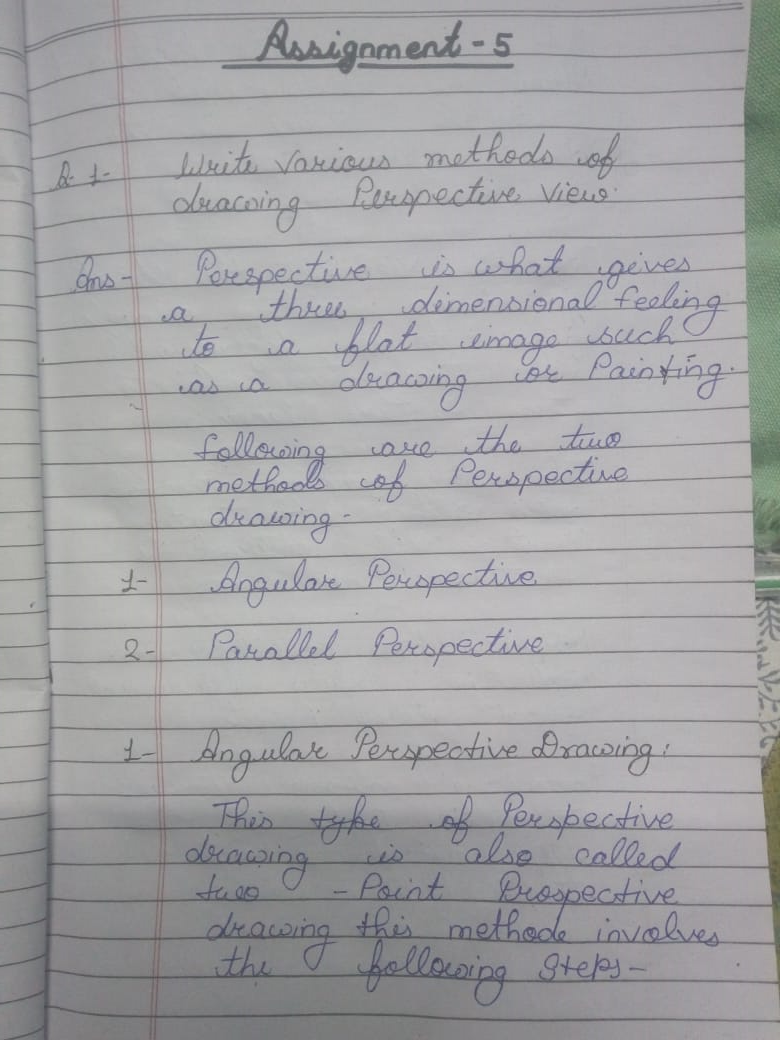 Assignment - 5
Q. 1- Write Various methods of
drawing Perspective View.
Ans - Perspective is what gives
a three dimensional feeling
to a flat image such
as a drawing or Painting.
following are the two
methods of Perspective
drawing -
1- Angular Perspective
2- Parallel Perspective
1- Angular Perspective Drawing:
This type of Perspective
drawing is also called
two - Point Prospective
drawing this methode involves
the following steps -